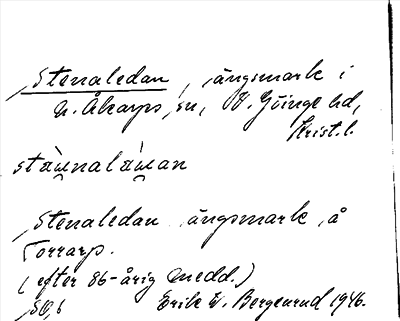 Stenaledan, ängsmark i
N. Åkarps sn, V. Göinge hd,
Krist. l.
Stenaledan ängsmark å
Torrarp.
(efter 86-årig medd.)
Erik W. Bergenrud 1946.